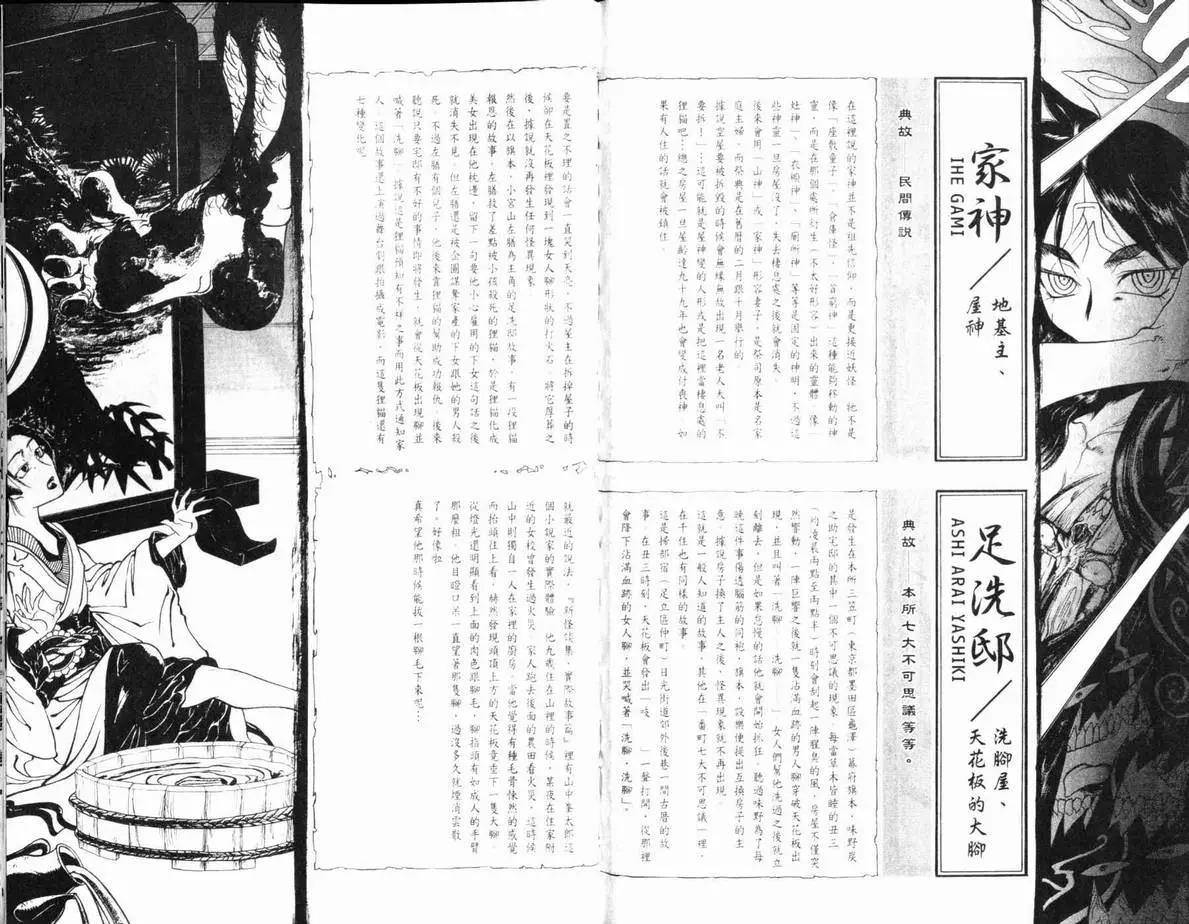 家神／地基主、
屋神
IHE GAMI
典故　民間傳說
在這裡說的家神並不是祖先信仰，而是更接近妖怪，祂不是
像「座敷童子」、「倉庫怪」、「貧窮神」這種能夠移動的神
靈，而是在那個處所衍生（不太好形容）出來的靈體，像「
灶神」、「衣櫥神」、「廁所神」等等是固定的神明，不過這
些神靈一旦房屋沒了，失去棲息處之後就會消失。
後來會用「山神」或「家神」形容妻子，是祭司原本是名家
庭主婦，而祭典是在舊曆的二月跟十月舉行的。
據說空屋要被拆毀的時候會無緣無故出現一名老人大叫「不
要拆！」…這可能就是屋神變的人形或是把這裡當棲息處的
狸貓吧…總之房屋一旦屋齡達九十九年也會變成付喪神，如
果有人住的話就會被鎮住。
足洗邸／洗腳屋、
天花板的大腳
ASHI ARAI YASHIKI
典故　本所七大不可思議等等。
是發生在本所三笠町（東京都墨田區龜澤）幕府旗本，味野岌
之助宅邸的其中一個不可思議的現象，每當草木皆睡的丑三
（約凌晨兩點至兩點半）時刻會刮起一陣腥臭的風，房屋不僅突
然響動，一陣巨響之後就一隻沾滿血跡的男人腳穿破天花板出
現，並且叫著「洗腳——洗腳——」女人們幫他洗過之後就立
刻離去，但是如果怠慢的話他就會開始抓狂。聽過味野為了每
晚這件事傷透腦筋的同袍，旗本，設樂便提出互換房子的主
意。據說房子換了主人之後，怪異現象就不再出現。
這就是一般人知道的故事，其他在「番町七大不可思議」裡，
在千住也有同樣的故事。
這是掃部宿（足立區仲町）日光街道郊外後巷一間古曆的故
事，在丑三時刻，天花板會發出「吱——」一聲打開，從那裡
會降下沾滿血跡的女人腳，並哭喊著「洗腳，洗腳」。
要是置之不理的話會一直哭到天亮。不過屋主在拆掉屋子的時
候卻在天花板裡發現到一塊女人腳形狀的打火石。將它厚葬之
後，據說就沒再發生任何怪異現象。
然後在以旗本，小宮山左膳為主角的足洗邸故事，有一段狸貓
報恩的故事。左膳救了差點被小孩殺死的狸貓，於是狸貓化成
美女出現在他枕邊，留下一句要他小心雇用的下女這句話之後
就消失不見。但左膳還是被企圖謀奪家產的下女跟她的男人殺
死，不過左膳有個兒子，他後來靠狸貓的幫助成功報仇。後來
聽說只要宅邸有不好的事情即將發生，就會從天花板出現腳並
喊著「洗腳」。據說這是狸貓預知有不祥之事而用此方式通知家
人。這個故事還上演過舞台劇跟拍攝成電影，而這隻狸貓還有
七種變化呢。
就最近的說法，『新怪談集 實際故事篇』裡有山中峯太郎這
個小說家的實際體驗。他九歲住在山裡的時候，某夜在住家附
近的女校曾發生過火災。家人跑去後面的農田看火災，這時候
山中則獨自一人在家裡的廚房。當他覺得有種毛骨悚然的感覺
而抬頭往上看，赫然發現頭頂上方的天花板竟垂下一隻大腳。
從燈光還明顯看到上面的肉色跟腳毛，腳指頭有如成人的手臂
那麼粗，他目瞪口呆一直望著那隻腳，過沒多久就煙消雲散
了。好像啦。
真希望他那時候能拔一根腳毛下來呢…